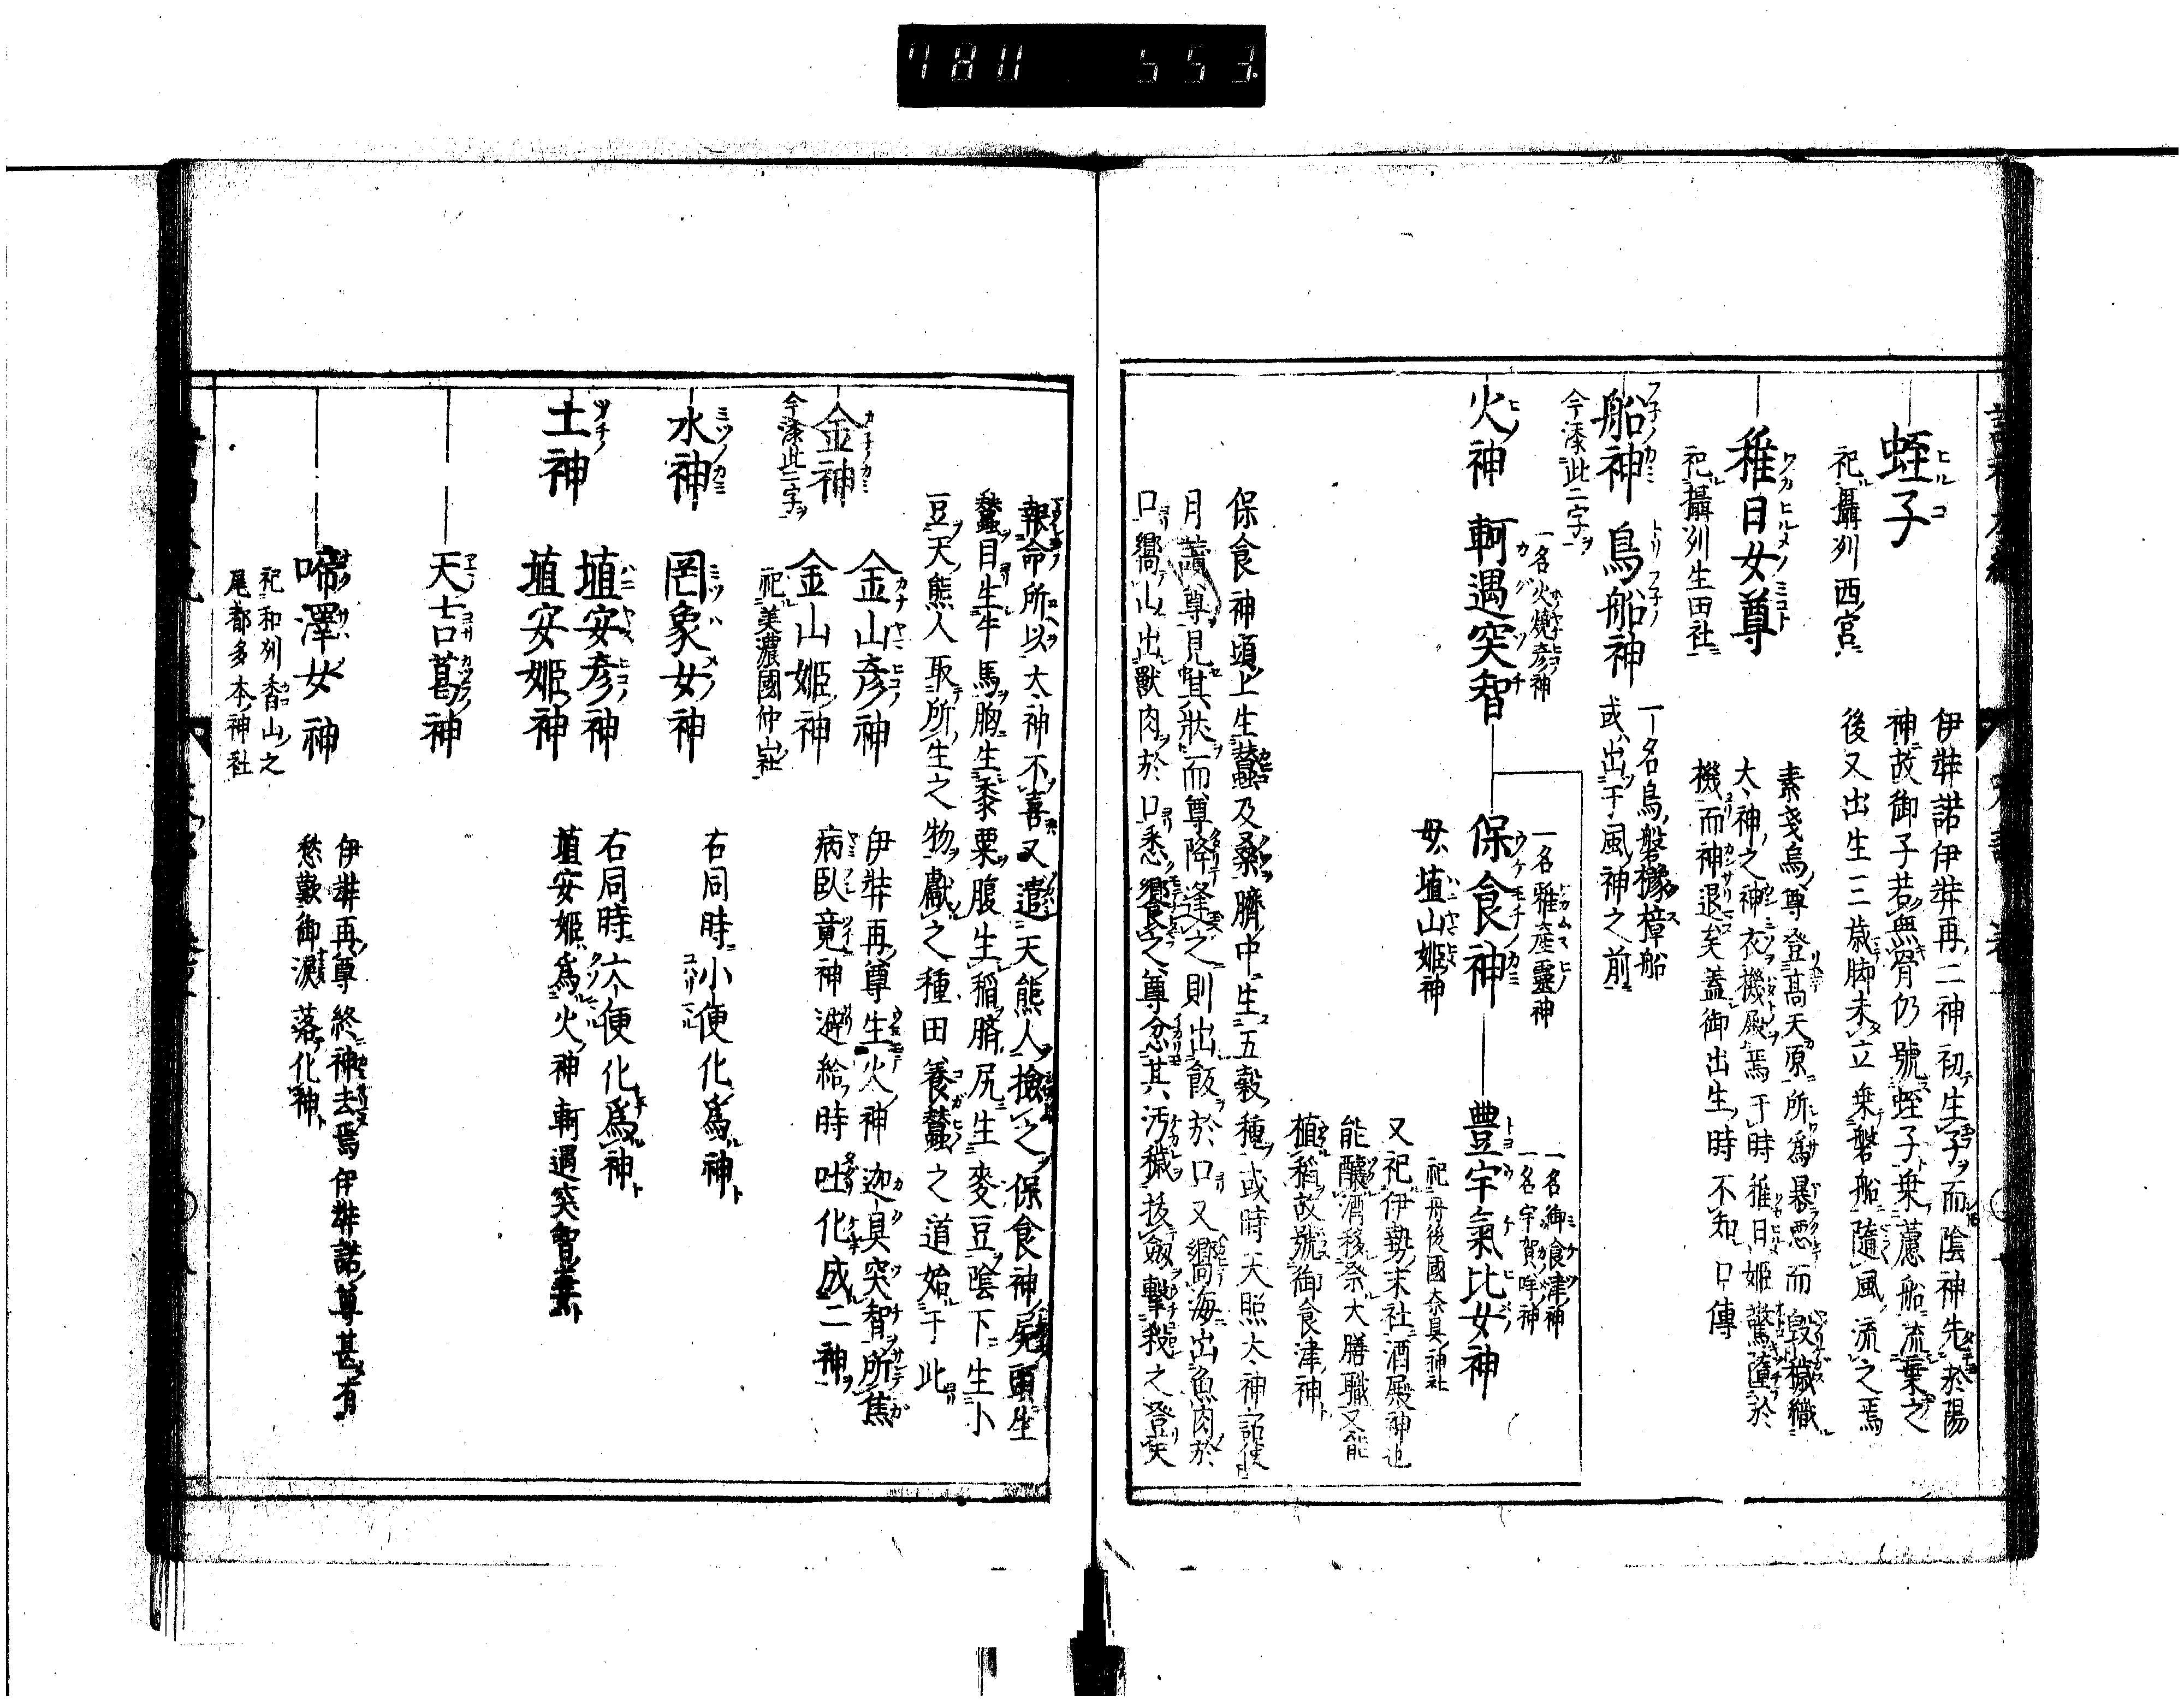 蛭子
祀攝列西宮
伊弉諾伊弉再二神初生子而陰神先於陽
神故御子若無骨仍號蛭子乗蘆船流棄之
後又出生三歳脚未立乗磐船隨風流之焉
稚日女尊
祀攝列生田社
素戔烏尊登髙天原所為暴悪而毀穢織
大神之神衣機殿焉于時稚日姫驚墮於
機而神退矣蓋御出生時不知口傳
船神 鳥船神
一名鳥磐櫲樟船
或出于風神之前
今漆此二字
火神 軻遇突智
一名火燒彦神
保食神
一名稚産靈神
母埴山姫神
豊宇氣比女神
一名御食津神
一名宇賀咩神
祀丹後國奈具神社
又祀伊勢末社酒殿神也
能釀酒移祭大膳職又能
植稻故號御食津神
保食神頭上生蠶及桑臍中生五穀種或時天照大神詔使
月讀尊見其状而尊降逢之則出飯於口又嚮海出魚肉於
口嚮山出獣肉於口悉饗之尊忿其汚穢抜劔擊殺之登矢
報命所以大神不喜又遣天熊人撿之保食神屍頭生
蠶目生牛馬胸生黍粟腹生稲臍尻生麥豆陰下生小
豆天熊人取所生之物献之種田養蠶之道始于此
金神
今漆此二字
金山彦神
金山姫神
祀美濃國仲山社
伊弉再尊生火神迦具突智所焦
病臥竟神避給時吐化成二神
水神 罔象女神
右同時小便化為神
土神
埴安彦神
埴安姫神
右同時大便化為神
埴安姫為火神軻遇突智妻
天吉葛神
啼澤女神
祀和列香山之
尾都多本神社
伊弉再尊終神去焉伊弉諾尊甚有
愁歎御涙落化神